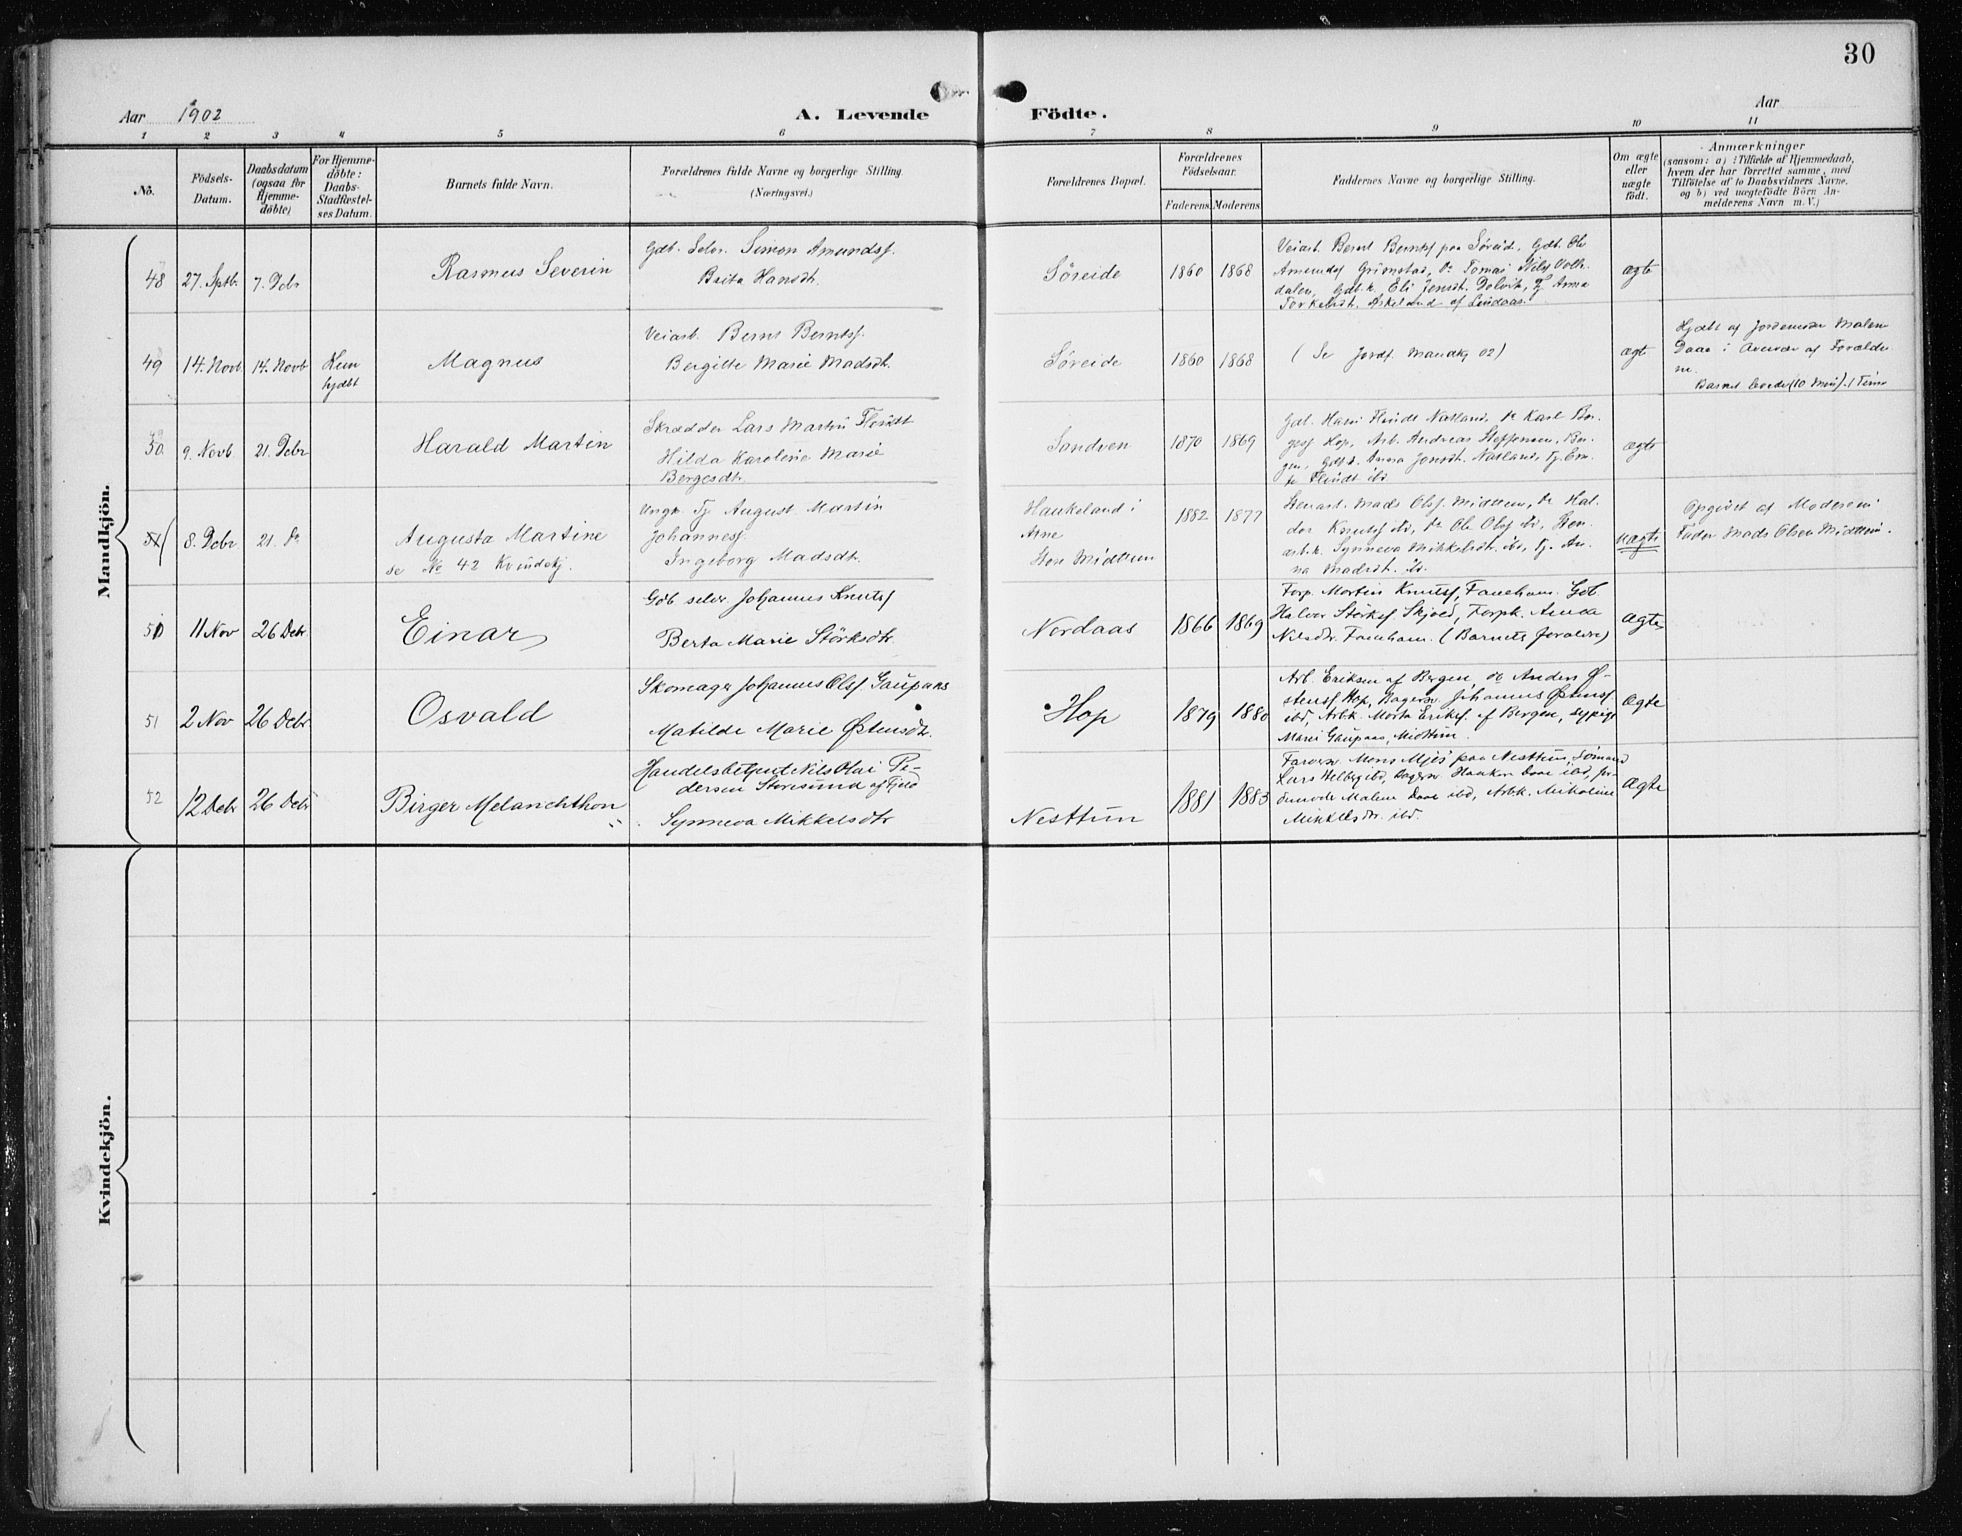 30
Aar 1902
A. Levende Födte.
Aar
1 2 3 4 5 6 7 8 9 10 11
No.
Födsels-Datum.
Daabsdatum (ogsaa for Hjemme-döbte)
For Hjemme-döbte: Daabs-Stadfæstel-ses Datum.
Barnets fulde Navn.
Forældrenes fulde Navne og borgerlige Stilling (Næringsvei.)
Forældrenes Bopæl.
Forældrenes Födselsaar.
Faderens. Moderens.
Faddernes Navne og borgerlige Stilling.
Om ægte eller uægte födt.
Anmærkninger
(saasom: a) i Tilfælde af Hjemmedaab,
hvem der har forrettet samme, med
Tilföielse af to Daabsvidners Navne,
og b) ved uægtefödte Börn An-
melderens Navn m. V.)
Mandkjön.
48 27. Sptb. 7. Debr
Rasmus Severin
Gdb. Selv. Simon Amundsf.
Brita Hansdtr.
Søreide 1860 1868
Veiarb. Bernt Berntsf paa Søreid, Gdb. Ole
Amundsf Grimstad, Do Tomas Nilsf
dalen, Gdbk. Eli Jensdt. Dolvik, Anna
Torkelsdt. Askeland af Lindaas.
ægte
49 14. Novb. 14. Novb
Kun
hjdbt
Magnus
Veiarb. Bernt Berntsf.
Bergitte Marie Madsdtr.
Søreide 1860 1868
(Se Jordf. Mandkj 02)
ægte
Hjdbt af Jordemoder Malene
Daae i Overvær af Forældre
ne.
Barnet levede (10 Min). 1 Time
50. 9. Novb. 21. Debr
Harald Martin
Skrædder Lars Martin Flindt
Hilda Karoline Marie
Børgesdtr.
Sandven 1870 1869
Gdb. Hans Flindt Natland, Do Karl Bør-
gesf Hop, Arb. Andreas Steffensen, Ber-
gen, Gdbk. Anna Jensdt. Natland, Tj. Em-
Flindt ibd
ægte
51 8. Debr 21. Do
Augusta Martine
se No 42 Kvindekj.
Ungk. Tj August Martin
Johannesf.
Ingeborg Madsdtr.
Haukeland i
Arne
Store Midttun
1882 1877
Stenarb. Mads Olsf. Midttun, Do Hal-
dor Knutsf ibd, Do Ole Olsf ibd, Sten-
arbk. Synneva Mikkelsdt. ibd, Tj. An-
na Madsdt. ibd.
uægte
Opgivet af Moderens
Fader Mads Olsen Midttun.
50 11 Nov 26 Debr.
Einar
Gdb selv. Johannes Knutsf
Berta Marie Störksdtr.
Nordaas 1866 1869
Forp. Morten Knutsf, Faneham. Gdb
Halvor Störksf Skjold, Forpk. Anna
Nilsdtr. Fanham. (Barnets foreldre)
Ægte
51 2 Nov 26 Debr
Osvald
Skomager Johannes Olsf. Gaupaas
Matilde Marie Østensdtr.
Hop 1879 1880
Arb. Eriksen af Bergen, do Anders Ø-
stensf. Hop, Bagersv. Johannes Østensf.
ibd, Arbk. Marta Eriksf. af Bergen, sypige
Marie Gaupaas, Midttun.
Ægte
52 12 Debr 26 Debr
Birger Melanchthon
Handelsbetjent Nils Olai Pe-
dersen Storesund af Fjeld
Synneva Mikkelsdtr
Nesttun 1881 1883
Farver Mons Mjös paa Nesttun, Sømand
Lars Helberg ibd, Bagersv Haakon Daae ibd, jor-
demode Malene Daae ibd, Arbk. Nikoline
Mikkelsdtr. ibd.
Ægte
Kvindekjön.